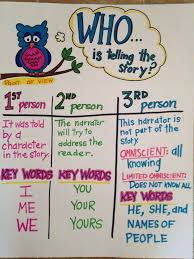 WHO...
is telling the
story?
POINT OF VIEW
1ST
person
It was told
by a
character
in the story.
KEY WORDS
I
ME
WE
2ND
person
The narrator
will try to
address the
reader.
KEY WORDS
YOU
YOUR
YOURS
3RD
person
This narrator is
not part of the
story
OMNISCIENT: all
knowing
LIMITED OMNISCIENT:
DOES NOT KNOW ALL
KEY WORDS
HE, SHE, AND
NAMES OF
PEOPLE